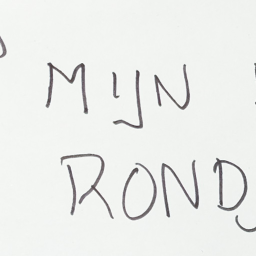 MIJN
ROND